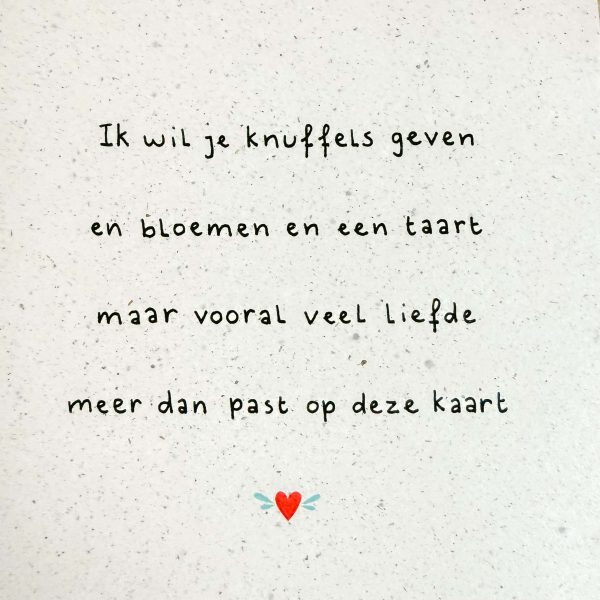 Ik wil je knuffels geven
en bloemen en een taart
maar vooral veel liefde
meer dan past op deze kaart